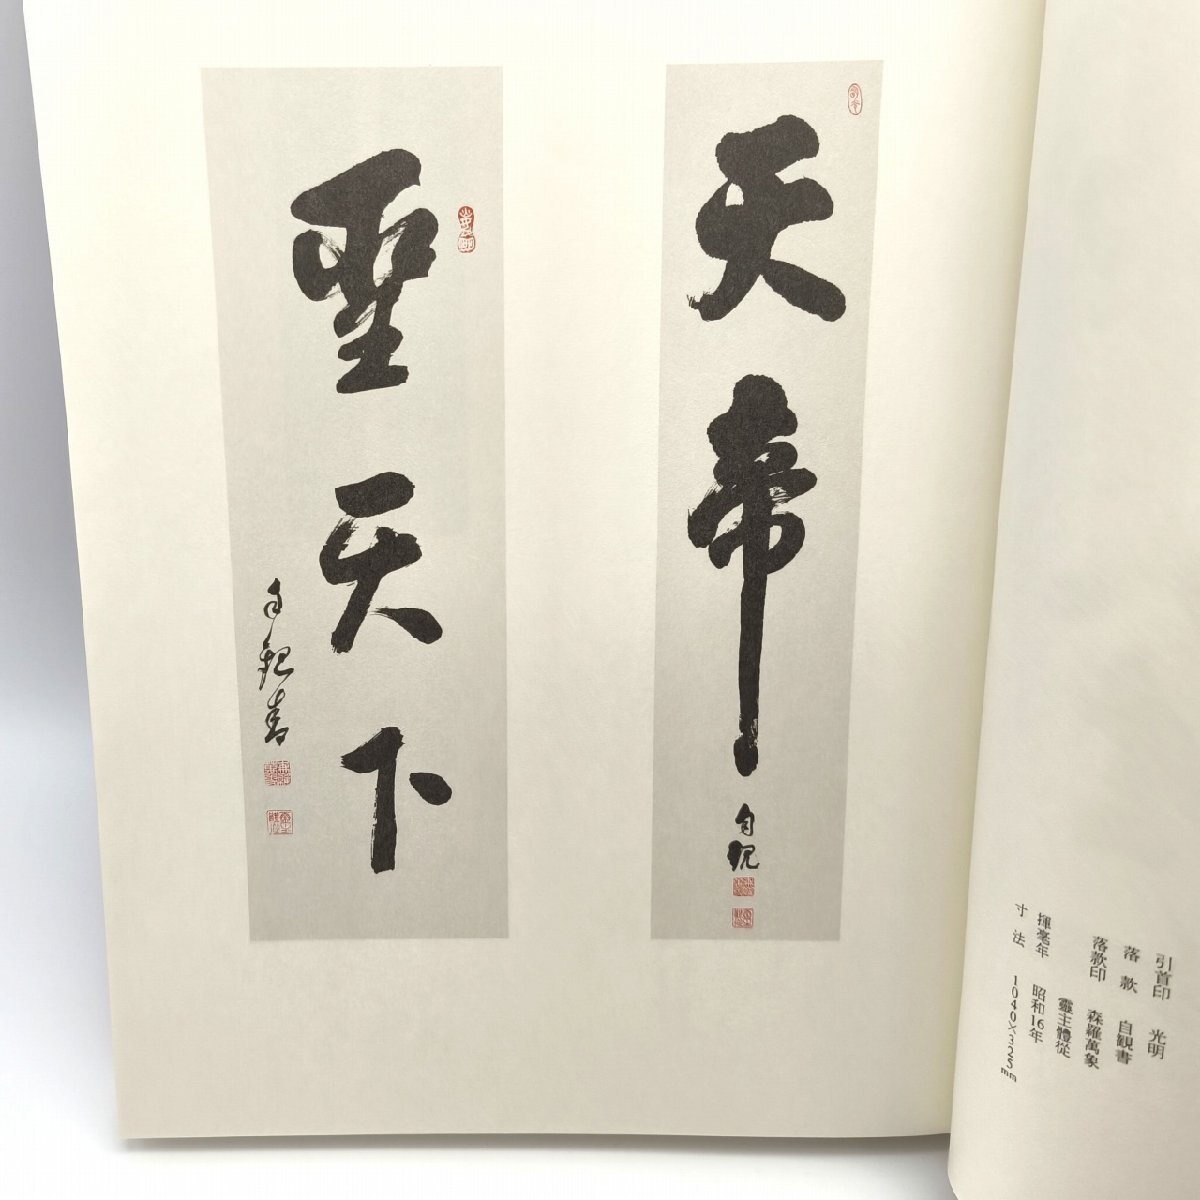 引首印 光明
落款 自観書
落款印 森羅萬象
靈主體從
揮毫年 昭和16年
寸法 1040×325mm
天帝
自観
聖天下
自観書